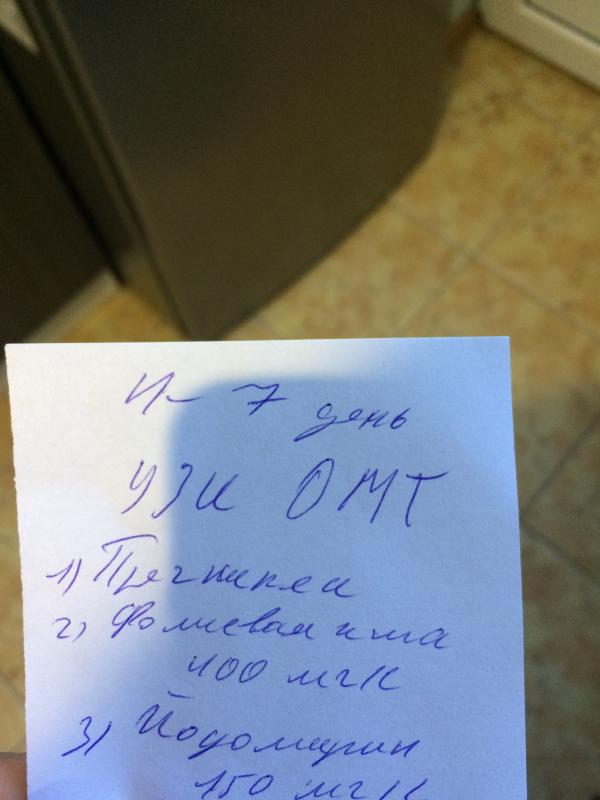 4- 7 день
УЗИ ОМТ
1) Прегнакеа
2) Фолиевая к-та
400 мгк
3) Йодомарин
150 мгк